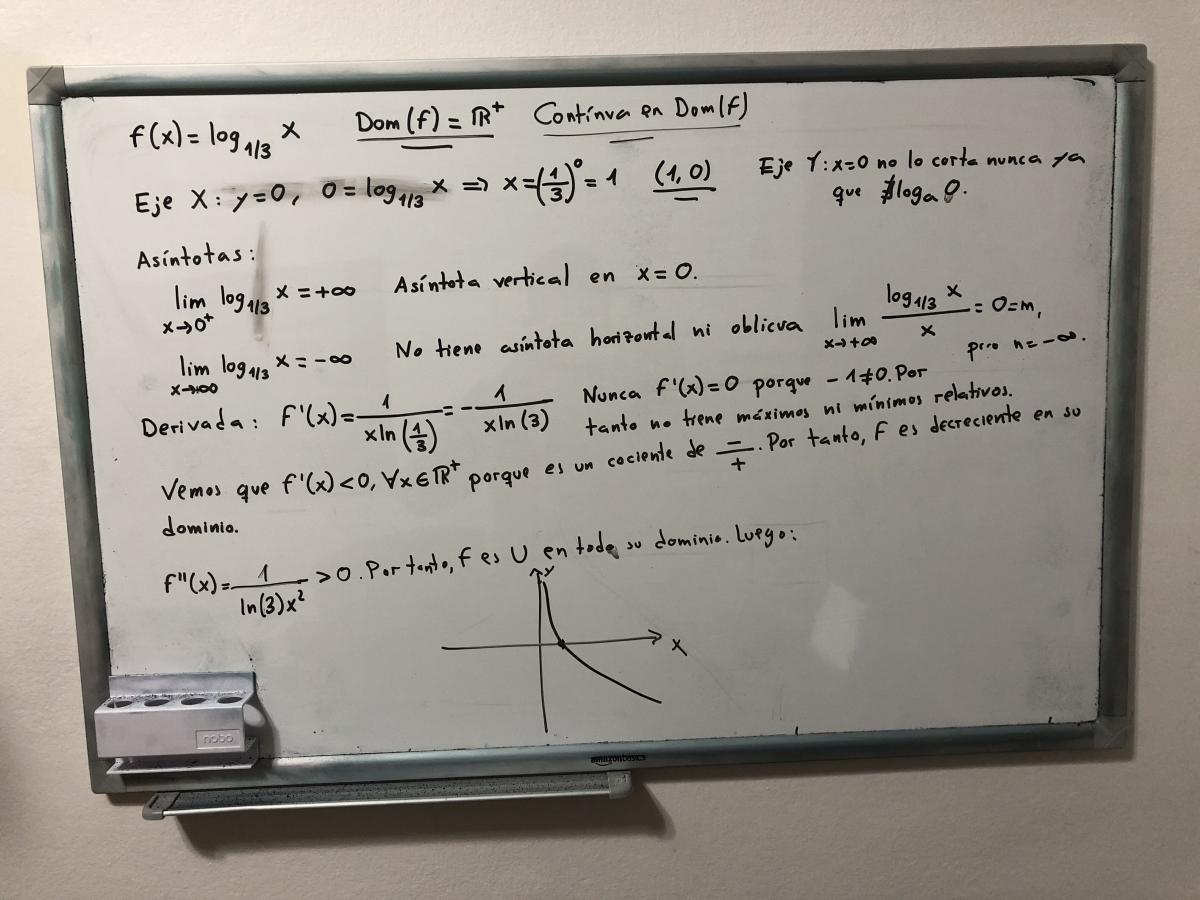 f(x)=log_{1/3} x Dom(f)=ℝ⁺ Contínua en Dom(f)
Eje X: y=0, 0=log_{1/3} x ⇒ x=(1/3)⁰=1 (1,0) Eje Y: x=0 no lo corta nunca ya
que ∄logₐ 0.
Asíntotas:
lim_{x→0⁺} log_{1/3} x=+∞ Asíntota vertical en x=0.
lim_{x→+∞} log_{1/3} x=-∞ No tiene asíntota horizontal ni oblicua lim_{x→+∞} (log_{1/3} x)/x=0=m,
pero n=-∞.
Derivada: f'(x)=1/(x ln(1/3))=-1/(x ln(3)) Nunca f'(x)=0 porque -1≠0. Por
tanto no tiene máximos ni mínimos relativos.
Vemos que f'(x)<0, ∀x∈ℝ⁺ porque es un cociente de -/+. Por tanto, f es decreciente en su
dominio.
f''(x)=1/(ln(3)x²)>0. Por tanto, f es U en todo su dominio. Luego:
Y
X
nobo
amazonbasics